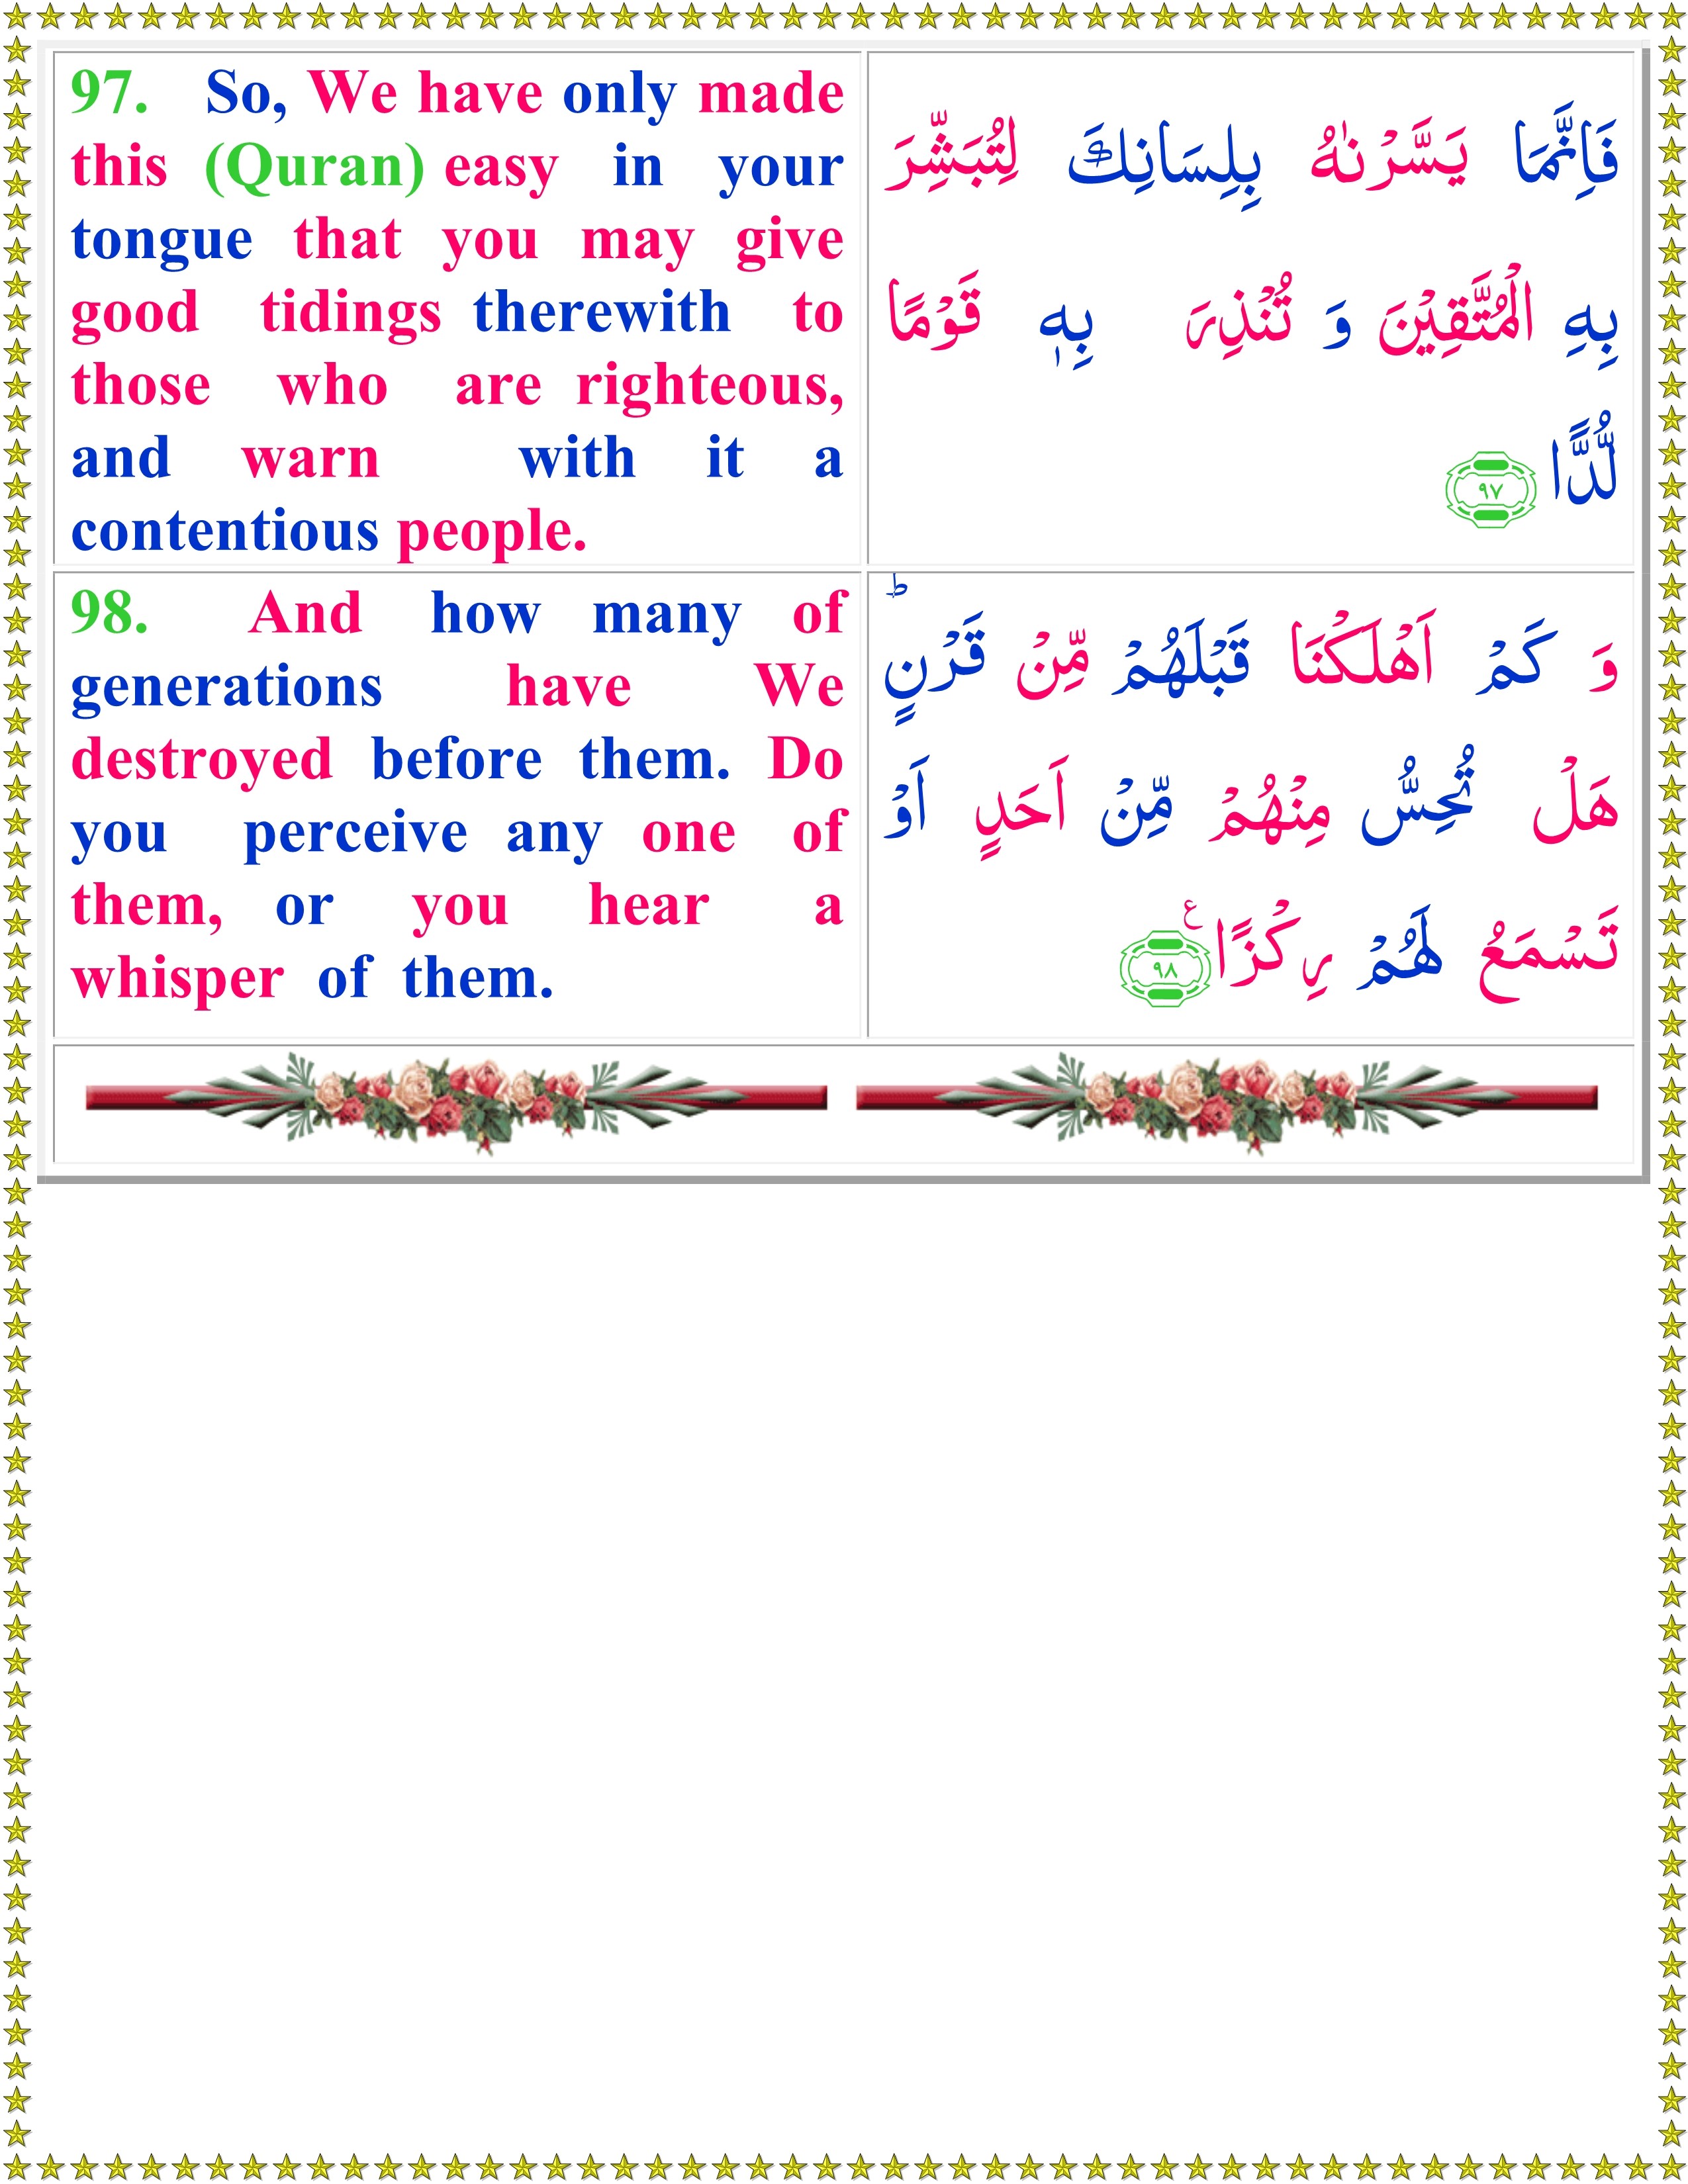 97. So, We have only made
this (Quran) easy in your
tongue that you may give
good tidings therewith to
those who are righteous,
and warn with it a
contentious people.
فَاِنَّمَا يَسَّرْنٰهُ بِلِسَانِكَ لِتُبَشِّرَ
بِهِ الْمُتَّقِيْنَ وَ تُنْذِرَ بِهٖ قَوْمًا
لُّدًّا ٩٧
98. And how many of
generations have We
destroyed before them. Do
you perceive any one of
them, or you hear a
whisper of them.
وَ كَمْ اَهْلَكْنَا قَبْلَهُمْ مِّنْ قَرْنٍ ؕ
هَلْ تُحِسُّ مِنْهُمْ مِّنْ اَحَدٍ اَوْ
تَسْمَعُ لَهُمْ رِكْزًا ع ٩٨